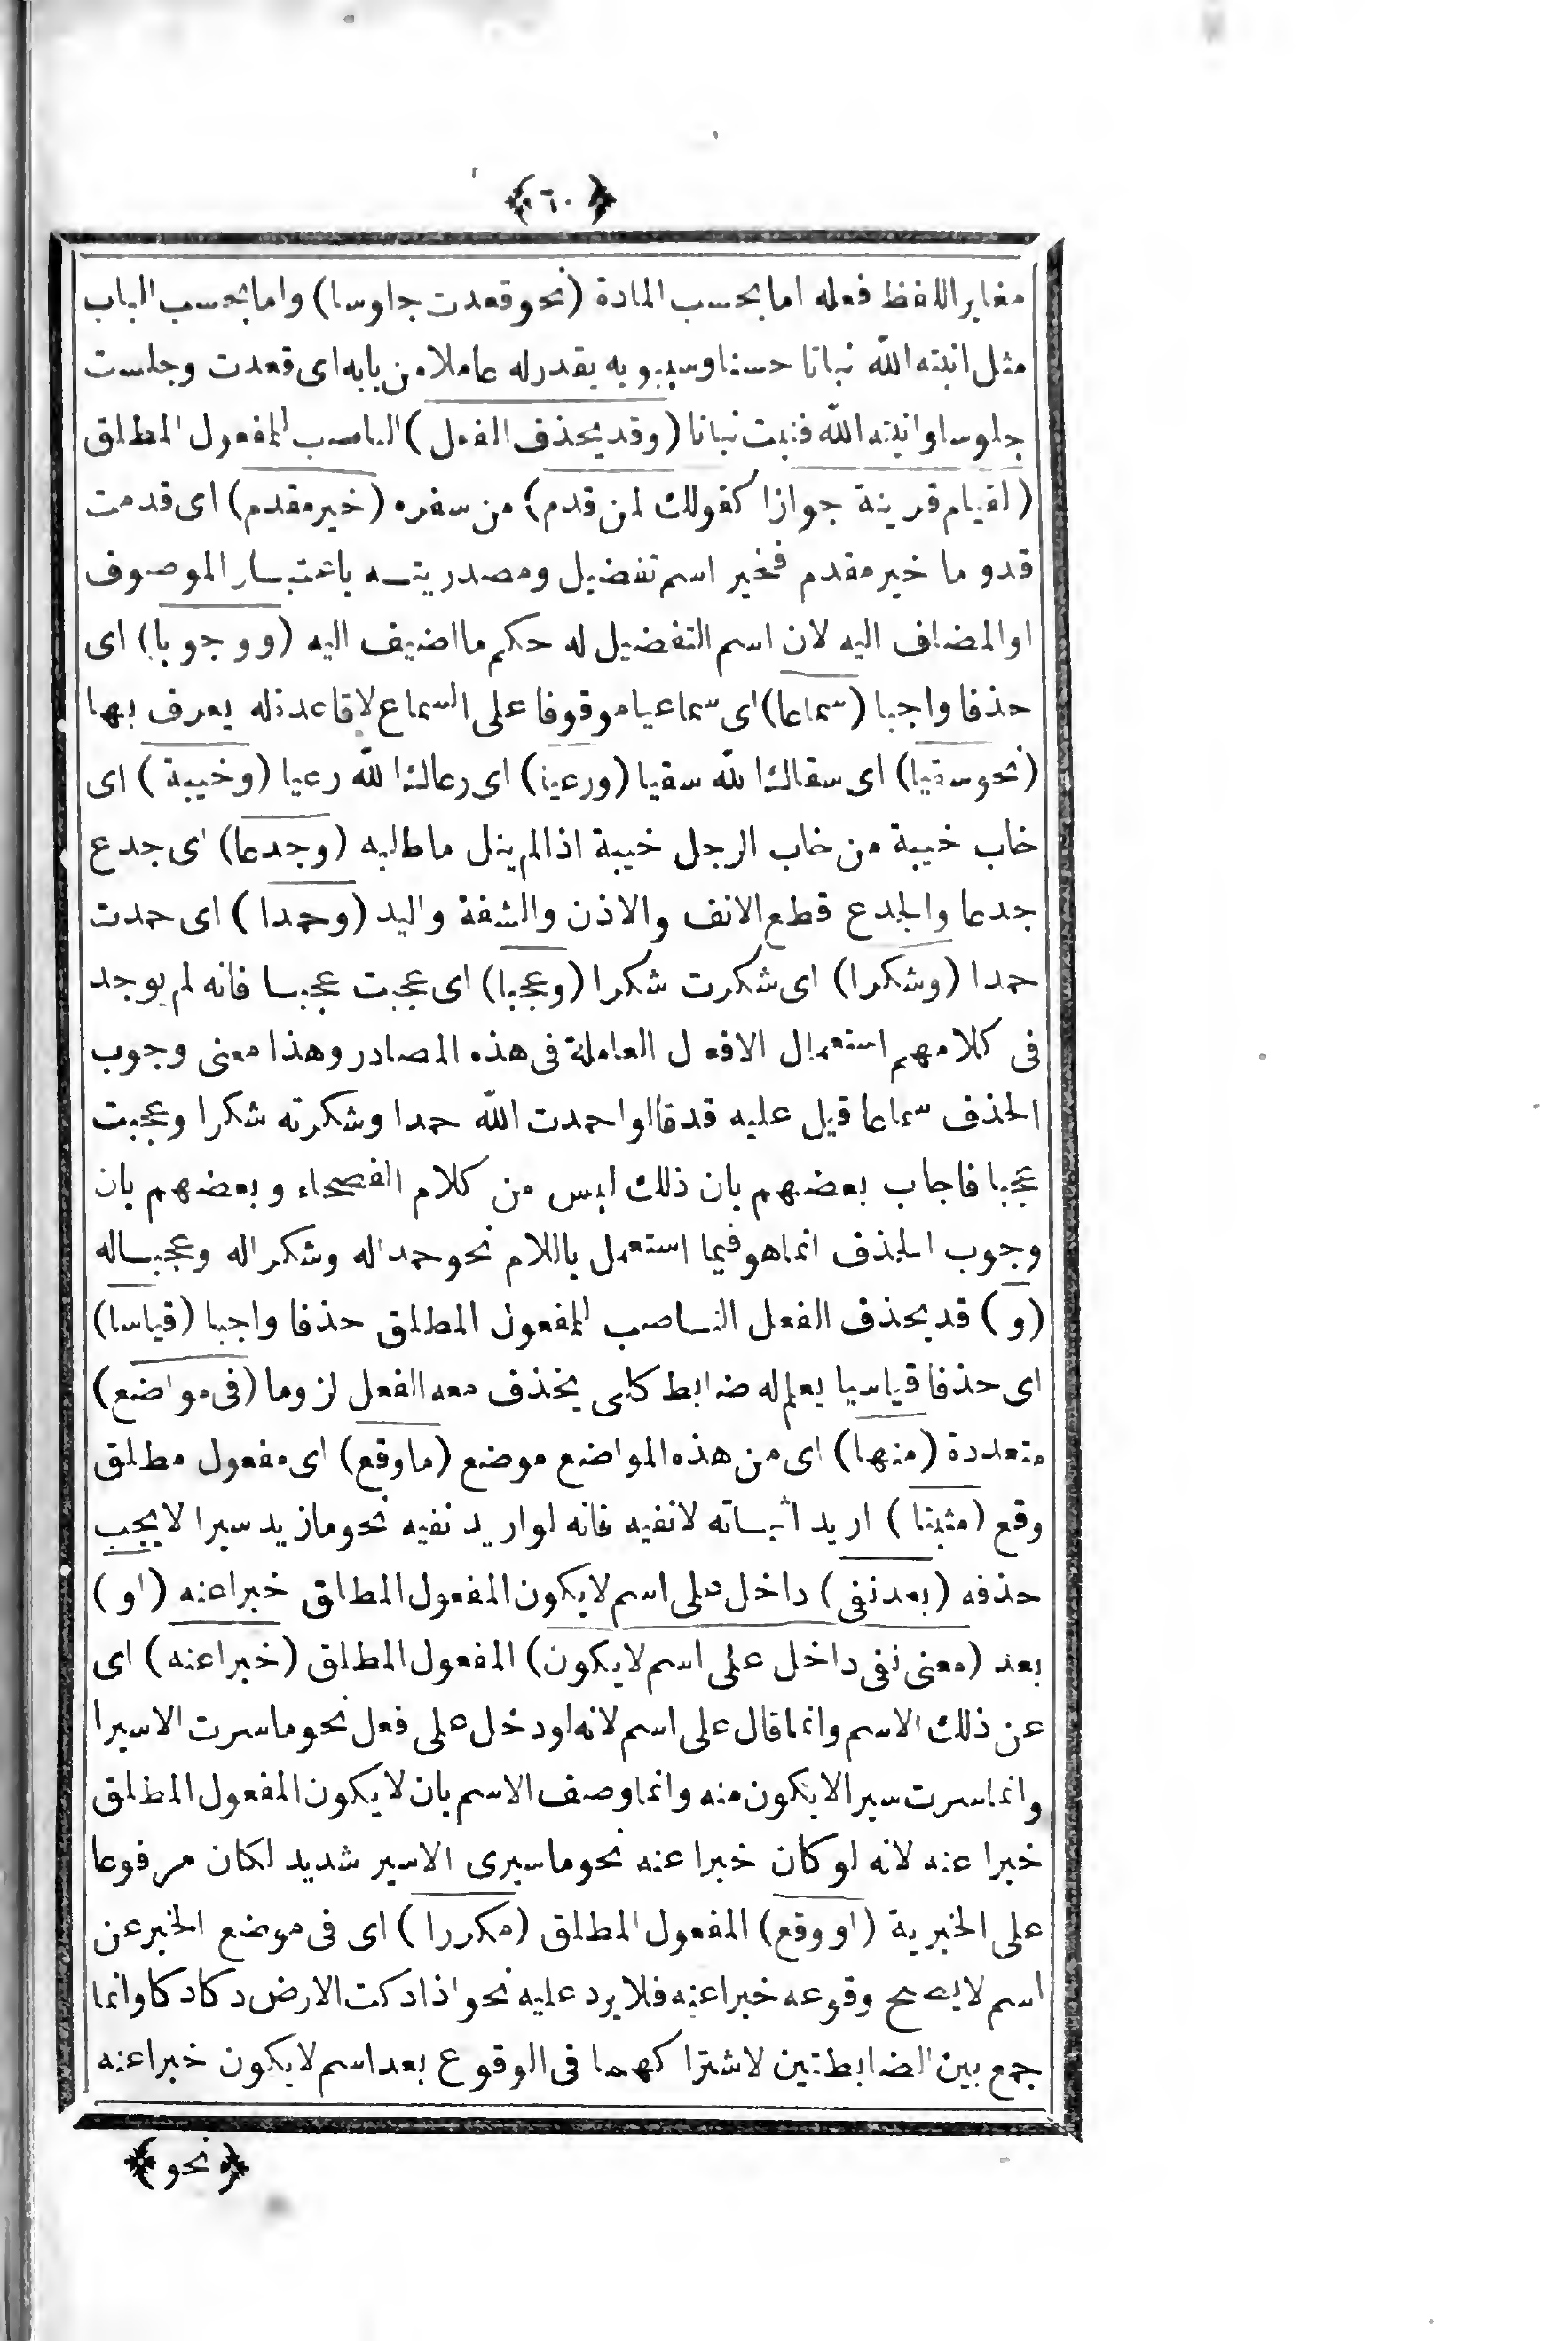 ﴿٦٠﴾
مغاير اللفظ فعله اما بحسب المادة (نحو قعدت جلوسا) واما بحسب الباب
مثل انبته الله نباتا حسنا وسيبويه يقدر له عاملا من بابه اى قعدت وجلست
جلوسا وانبته الله فنبت نباتا (وقد يحذف الفعل) الناصب للمفعول المطلق
(لقيام قرينة جوازا كقولك لمن قدم) من سفره (خير مقدم) اى قدمت
قدوما خير مقدم فخير اسم تفضيل ومصدريته باعتبار الموصوف
او المضاف اليه لان اسم التفضيل له حكم ما اضيف اليه (ووجوبا) اى
حذفا واجبا (سماعا) اى سماعيا موقوفا على السماع لا قاعدة له يعرف بها
(نحو سقيا) اى سقاك الله سقيا (ورعيا) اى رعاك الله رعيا (وخيبة) اى
خاب خيبة من خاب الرجل خيبة اذا لم ينل ما طلبه (وجدعا) اى جدع
جدعا والجدع قطع الانف والاذن والشفة واليد (وحمدا) اى حمدت
حمدا (وشكرا) اى شكرت شكرا (وعجبا) اى عجبت عجبا فانه لم يوجد
فى كلامهم استعمال الافعال العاملة فى هذه المصادر وهذا معنى وجوب
الحذف سماعا قيل عليه قد قالوا حمدت الله حمدا وشكرته شكرا وعجبت
عجبا فاجاب بعضهم بان ذلك ليس من كلام الفصحاء وبعضهم بان
وجوب الحذف انما هو فيما استعمل باللام نحو حمدا له وشكرا له وعجبا له
(و) قد يحذف الفعل الناصب للمفعول المطلق حذفا واجبا (قياسا)
اى حذفا قياسيا يعلم له ضابط كلى يحذف معه الفعل لزوما (فى مواضع)
متعددة (منها) اى من هذه المواضع موضع (ما وقع) اى مفعول مطلق
وقع (مثبتا) اريد اثباته لا نفيه فانه لو اريد نفيه نحو ما زيد سيرا لا يجب
حذفه (بعد نفى) داخل على اسم لا يكون المفعول المطلق خبرا عنه (او)
بعد (معنى نفى داخل على اسم لا يكون) المفعول المطلق (خبرا عنه) اى
عن ذلك الاسم وانما قال على اسم لانه لو دخل على فعل نحو ما سرت الا سيرا
وانما سرت سيرا لا يكون منه وانما وصف الاسم بان لا يكون المفعول المطلق
خبرا عنه لانه لو كان خبرا عنه نحو ما سيرى الا سير شديد لكان مرفوعا
على الخبرية (او وقع) المفعول المطلق (مكررا) اى فى موضع الخبر عن
اسم لا يصح وقوعه خبرا عنه فلا يرد عليه نحو اذا دكت الارض دكا دكا وانما
جمع بين الضابطتين لاشتراكهما فى الوقوع بعد اسم لا يكون خبرا عنه
﴿نحو﴾